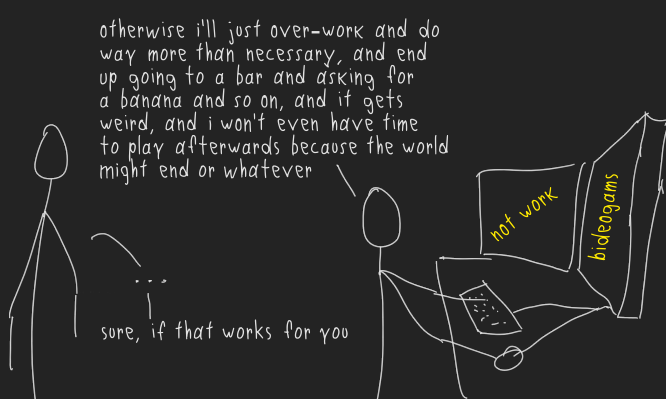 otherwise i'll just over-work and do
way more than necessary, and end
up going to a bar and asking for
a banana and so on, and it gets
weird, and i won't even have time
to play afterwards because the world
might end or whatever
not work
bideogams
...
sure, if that works for you